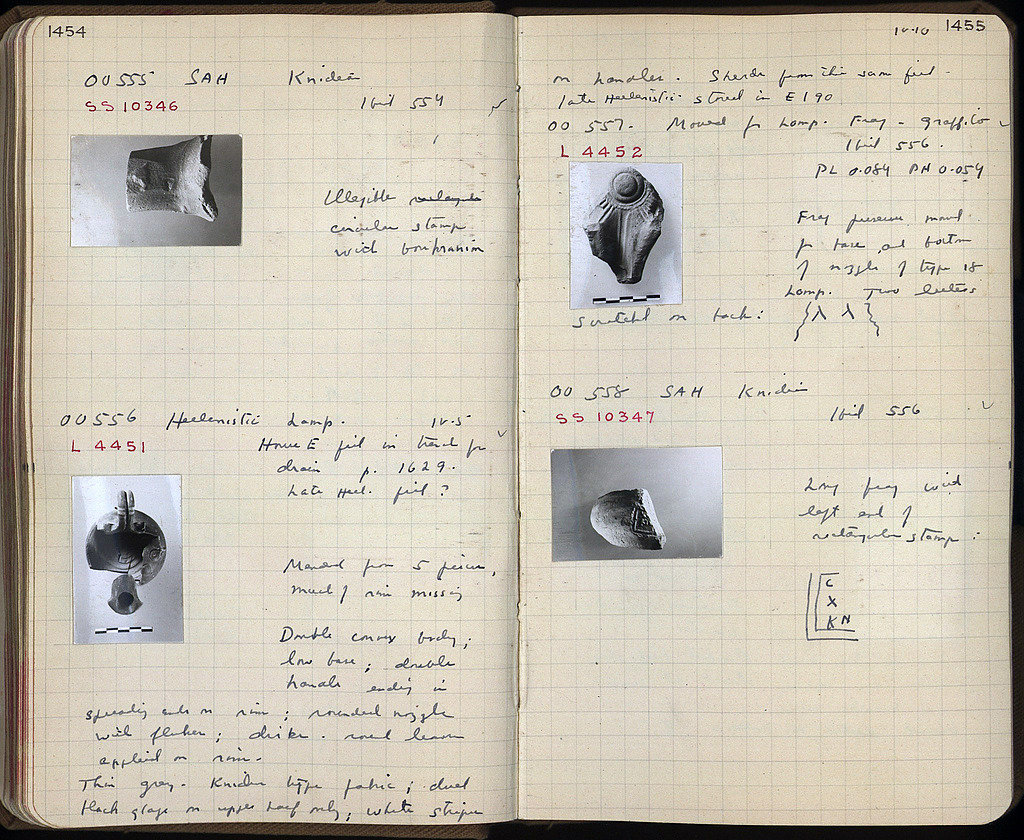 1454
OO 555 SAH Knidian
SS 10346
Ibid 554
Illegible rectangular
circular stamp
with boukranion
OO 556 Hellenistic Lamp. IV-5
L 4451
House E fill in trench for
drain p. 1629.
Late Hell. fill?
Mended from 5 pieces,
much of rim missing
Double convex body;
low base; double
handle ending in
spreading ends on rim; rounded nozzle
with flukes; leaves
applied on rim.
Thin gray. Knidian type fabric; dull
black glaze on upper half only; white stripes
IV-10 1455
on handles. Sherds from this same fill
late Hellenistic stored in E 190
OO 557. Mould for Lamp. Frag - graffito
L 4452
Ibid 556.
PL 0.084 PH 0.054
Frag preserves mould
for base and bottom
of nozzle of type 18
Lamp. Two letters
scratched on back: λ λ
OO 558 SAH Knidian
SS 10347
Ibid 556
frag with
left end of
rectangular stamp:
C
X
KN